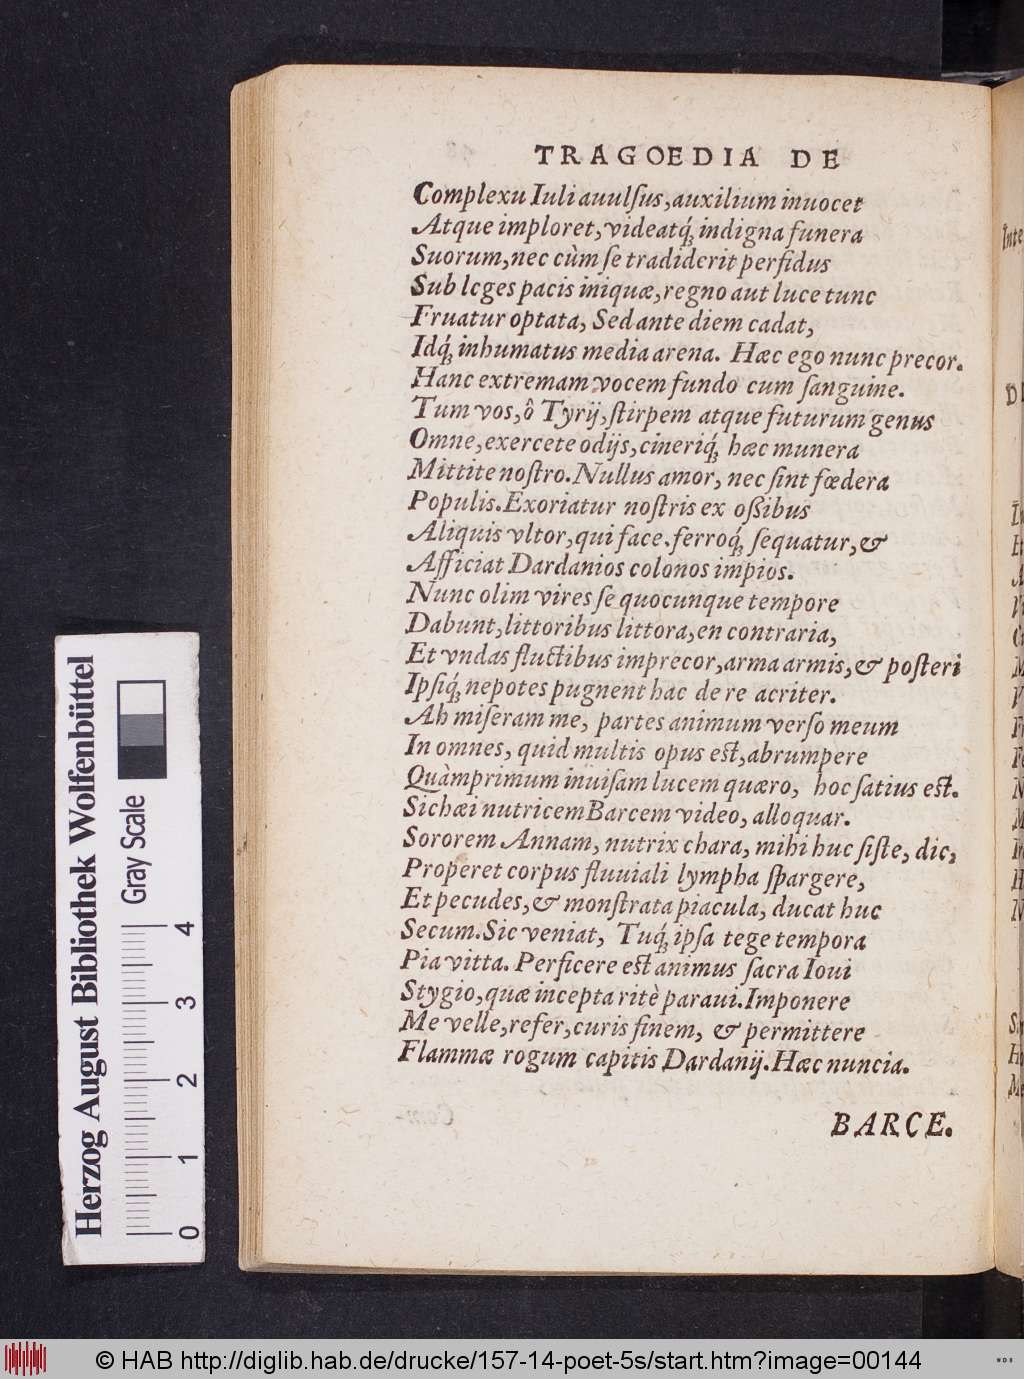 TRAGOEDIA DE
Complexu Iuli auulſus, auxilium inuocet
Atque imploret, videatq́; indigna funera
Suorum, nec cùm ſe tradiderit perfidus
Sub leges pacis iniquæ, regno aut luce tunc
Fruatur optata, Sed ante diem cadat,
Idq́; inhumatus media arena. Hæc ego nunc precor.
Hanc extremam vocem fundo cum ſanguine.
Tum vos, ô Tyrij, ſtirpem atque futurum genus
Omne, exercete odijs, cineriq́; hæc munera
Mittite noſtro. Nullus amor, nec ſint fœdera
Populis. Exoriatur noſtris ex oßibus
Aliquis vltor, qui face. ferroq́; ſequatur, &
Afficiat Dardanios colonos impios.
Nunc olim vires ſe quocunque tempore
Dabunt, littoribus littora, en contraria,
Et vndas fluctibus imprecor, arma armis, & poſteri
Ipſiq́; nepotes pugnent hac de re acriter.
Ah miſeram me, partes animum verſo meum
In omnes, quid multis opus est, abrumpere
Quàmprimum inuiſam lucem quæro, hoc ſatius est.
Sichæi nutricem Barcem video, alloquar.
Sororem Annam, nutrix chara, mihi huc ſiſte, dic,
Properet corpus fluuiali lympha ſpargere,
Et pecudes, & monſtrata piacula, ducat huc
Secum. Sic veniat, Tuq́; ipſa tege tempora
Pia vitta. Perficere est animus ſacra Ioui
Stygio, quæ incepta ritè paraui. Imponere
Me velle, refer, curis finem, & permittere
Flammæ rogum capitis Dardanij. Hæc nuncia.
BARCE.
Herzog August Bibliothek Wolfenbüttel
Gray Scale
0 1 2 3 4
© HAB http://diglib.hab.de/drucke/157-14-poet-5s/start.htm?image=00144